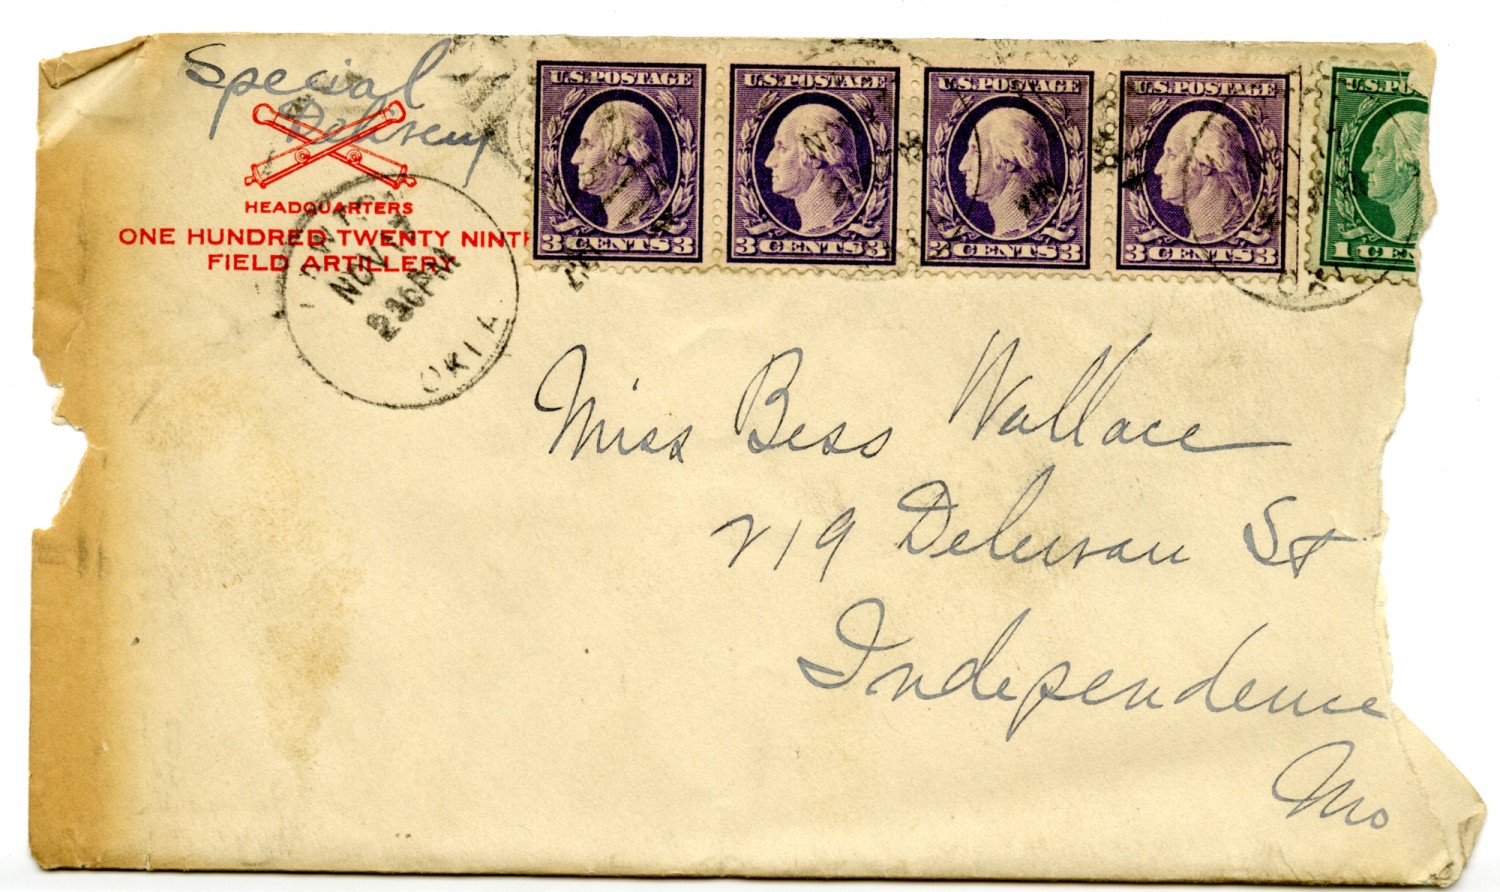 Special
Delivery
HEADQUARTERS
ONE HUNDRED TWENTY NINTH
FIELD ARTILLERY
NOV 17
230PM
OKLA
U.S.POSTAGE
3 CENTS 3
U.S.POSTAGE
3 CENTS 3
U.S.POSTAGE
3 CENTS 3
U.S.POSTAGE
3 CENTS 3
U.S.PO
1 CEN
Miss Bess Wallace
219 Delewan St
Independence
Mo